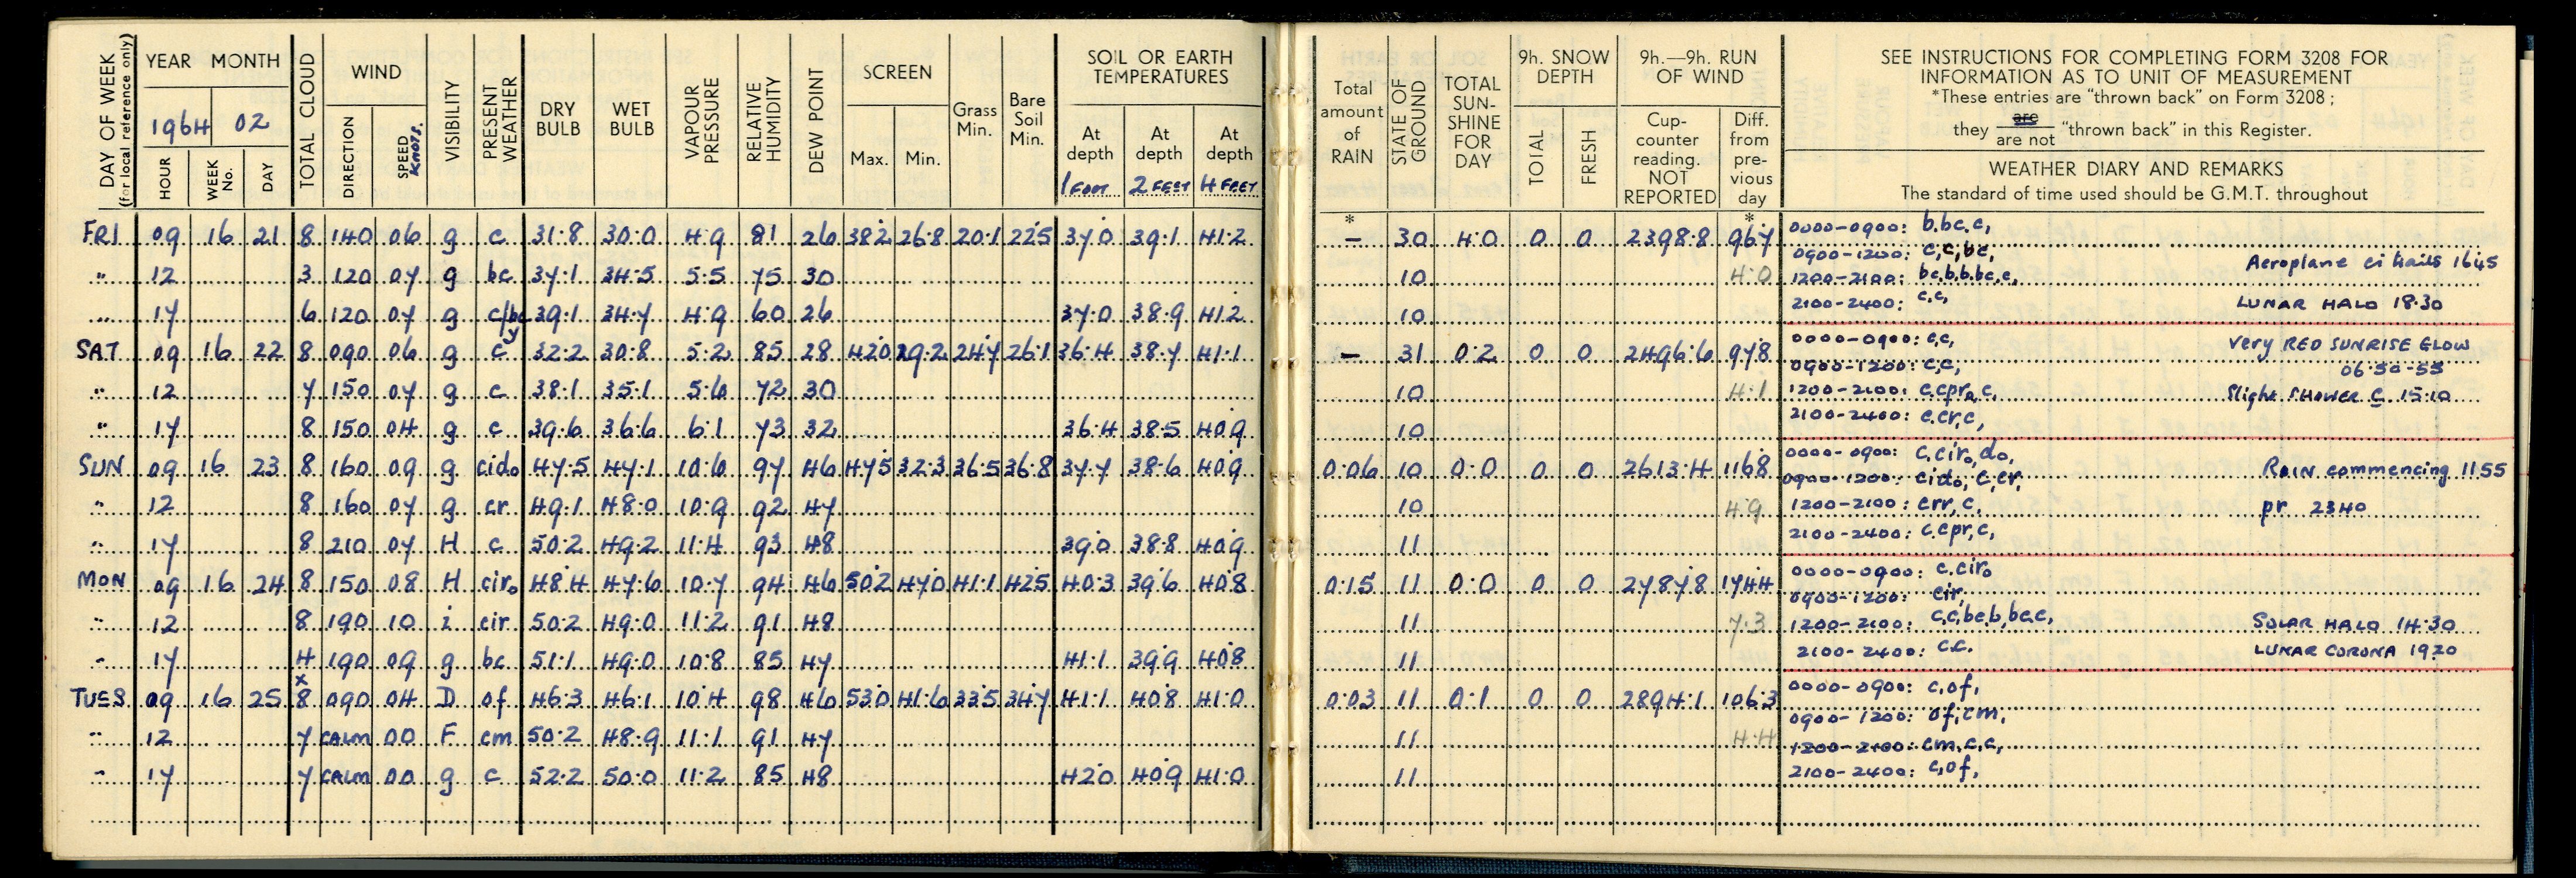 DAY OF WEEK (for local reference only)
YEAR MONTH
1964 02
HOUR WEEK No. DAY
TOTAL CLOUD
WIND
DIRECTION SPEED KNOTS.
VISIBILITY
PRESENT WEATHER
DRY BULB
WET BULB
VAPOUR PRESSURE
RELATIVE HUMIDITY
DEW POINT
SCREEN
Max. Min.
Grass Min.
Bare Soil Min.
SOIL OR EARTH TEMPERATURES
At depth 1 FOOT At depth 2 FEET At depth 4 FEET
Total amount of RAIN
STATE OF GROUND
TOTAL SUN-SHINE FOR DAY
9h. SNOW DEPTH
TOTAL FRESH
9h.—9h. RUN OF WIND
Cup-counter reading. NOT REPORTED
Diff. from pre-vious day
SEE INSTRUCTIONS FOR COMPLETING FORM 3208 FOR
INFORMATION AS TO UNIT OF MEASUREMENT
*These entries are "thrown back" on Form 3208 ;
they are / are not "thrown back" in this Register.
WEATHER DIARY AND REMARKS
The standard of time used should be G.M.T. throughout
* *
FRI 09 16 21 8 140 06 g c 31·8 30·0 4·9 81 26 38·2 26·8 20·1 22·5 37·0 39·1 41·2 — 30 4·0 0 0 2398·8 96·7 0000-0900: b.bc.c,
0900-1200: c,c,bc,
" 12 3 120 07 g bc 37·1 34·5 5·5 75 30 10 4·0 1200-2100: bc.b.b.bc.c, Aeroplane ci trails 1645
" 17 6 120 07 g c/bcy 39·1 34·7 4·9 60 26 37·0 38·9 41·2 10 2100-2400: c.c, LUNAR HALO 18·30
SAT 09 16 22 8 090 06 g c 32·2 30·8 5·2 85 28 42·0 29·2 24·7 26·1 36·4 38·7 41·1 — 31 0·2 0 0 2496·6 97·8 0000-0900: c,c, Very RED SUNRISE GLOW
0900-1200: c,c, 06·50-55
" 12 7 150 07 g c 38·1 35·1 5·6 72 30 10 4·1 1200-2100: c.cpro,c, Slight SHOWER C 15·10
" 17 8 150 04 g c 39·6 36·6 6·1 73 32 36·4 38·5 40·9 10 2100-2400: c.cr,c,
SUN 09 16 23 8 160 09 g cido 47·5 47·1 10·6 97 46 47·5 32·3 36·5 36·8 37·7 38·6 40·9 0·06 10 0·0 0 0 2613·4 116·8 0000-0900: c.ciro,do,
0900-1200: cido, c,cr, RAIN commencing 1155
" 12 8 160 07 g cr 49·1 48·0 10·9 92 47 10 4·9 1200-2100: crr,c, pr 2340
" 17 8 210 07 H c 50·2 49·2 11·4 93 48 39·0 38·8 40·9 11 2100-2400: c.cpr,c,
MON 09 16 24 8 150 08 H ciro 48·4 47·6 10·7 94 46 50·2 47·0 41·1 42·5 40·3 39·6 40·8 0·15 11 0·0 0 0 2787·8 174·4 0000-0900: c.ciro
0900-1200: cir,
" 12 8 190 10 i cir 50·2 49·0 11·2 91 48 11 7·3 1200-2100: c.c,bc.b,bc.c, SOLAR HALO 14·30
" 17 4 190 09 g bc 51·1 49·0 10·8 85 47 41·1 39·9 40·8 11 2100-2400: c.c. LUNAR CORONA 1920
x
TUES 09 16 25 8 090 04 D of 46·3 46·1 10·4 98 46 53·0 41·6 33·5 34·7 41·1 40·8 41·0 0·03 11 0·1 0 0 2894·1 106·3 0000-0900: c,of,
0900-1200: of,cm,
" 12 7 CALM 00 F cm 50·2 48·9 11·1 91 47 11 4·4 1200-2100: cm.c.c,
" 17 7 CALM 00 g c 52·2 50·0 11·2 85 48 42·0 40·9 41·0 11 2100-2400: c,of,